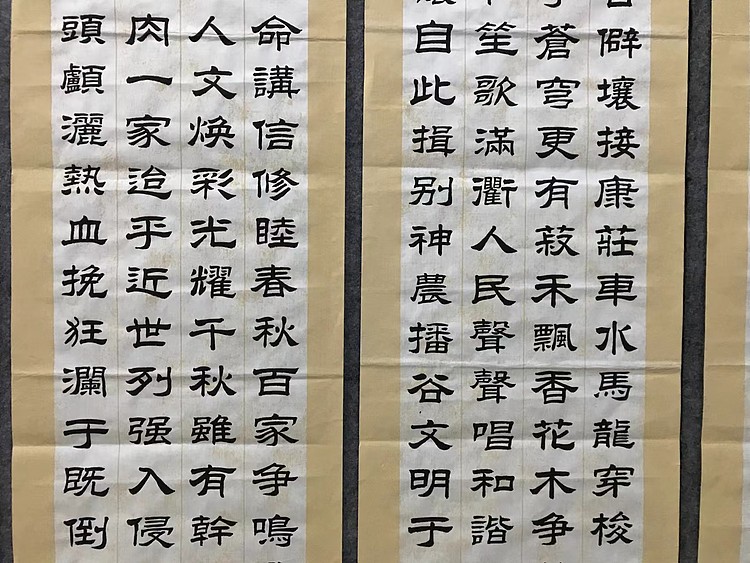 僻壤接康莊車水馬龍穿梭
蒼穹更有菽禾飄香花木争
笙歌滿衢人民聲聲唱和諧
自此揖别神農播谷文明于
命講信修睦春秋百家争鳴
人文焕彩光耀千秋雖有幹
肉一家迨乎近世列强入侵
頭顱灑熱血挽狂瀾于既倒